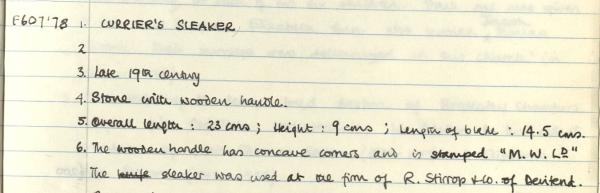 F607'78 1. CURRIER'S SLEAKER
2
3. Late 19th century
4. Stone with wooden handle.
5. Overall length : 23 cms ; Height : 9 cms ; Length of blade : 14.5 cms.
6. The wooden handle has concave corners and is stamped "M. W. LD"
The knife sleaker was used at the firm of R. Stirrop & Co. of Deritend.